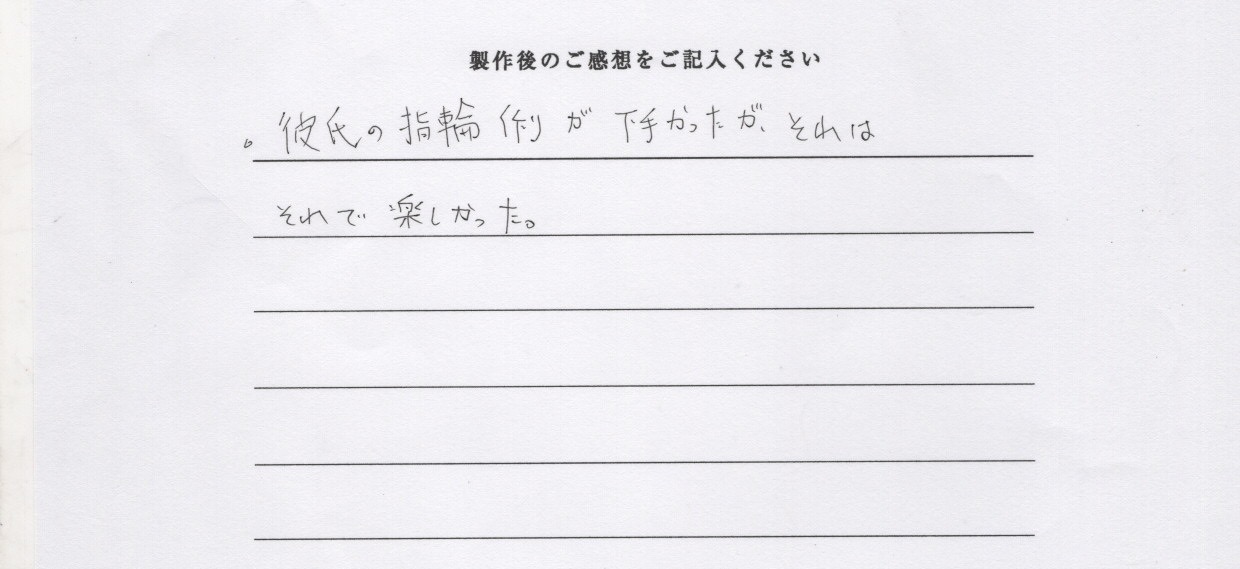 製作後のご感想をご記入ください
。彼氏の指輪作りが下手かったが、それは
それで楽しかった。